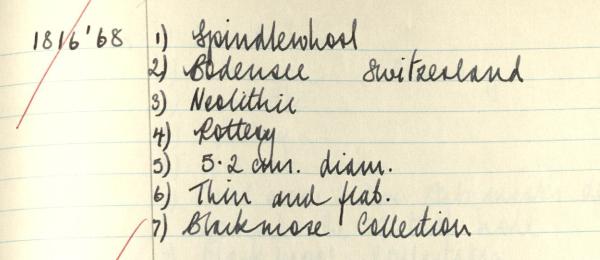 1816'68 1) Spindlewhorl
2) Bodensee Switzerland
3) Neolithic
4) Pottery
5) 5.2 cm. diam.
6) Thin and flat.
7) Blackmore Collection